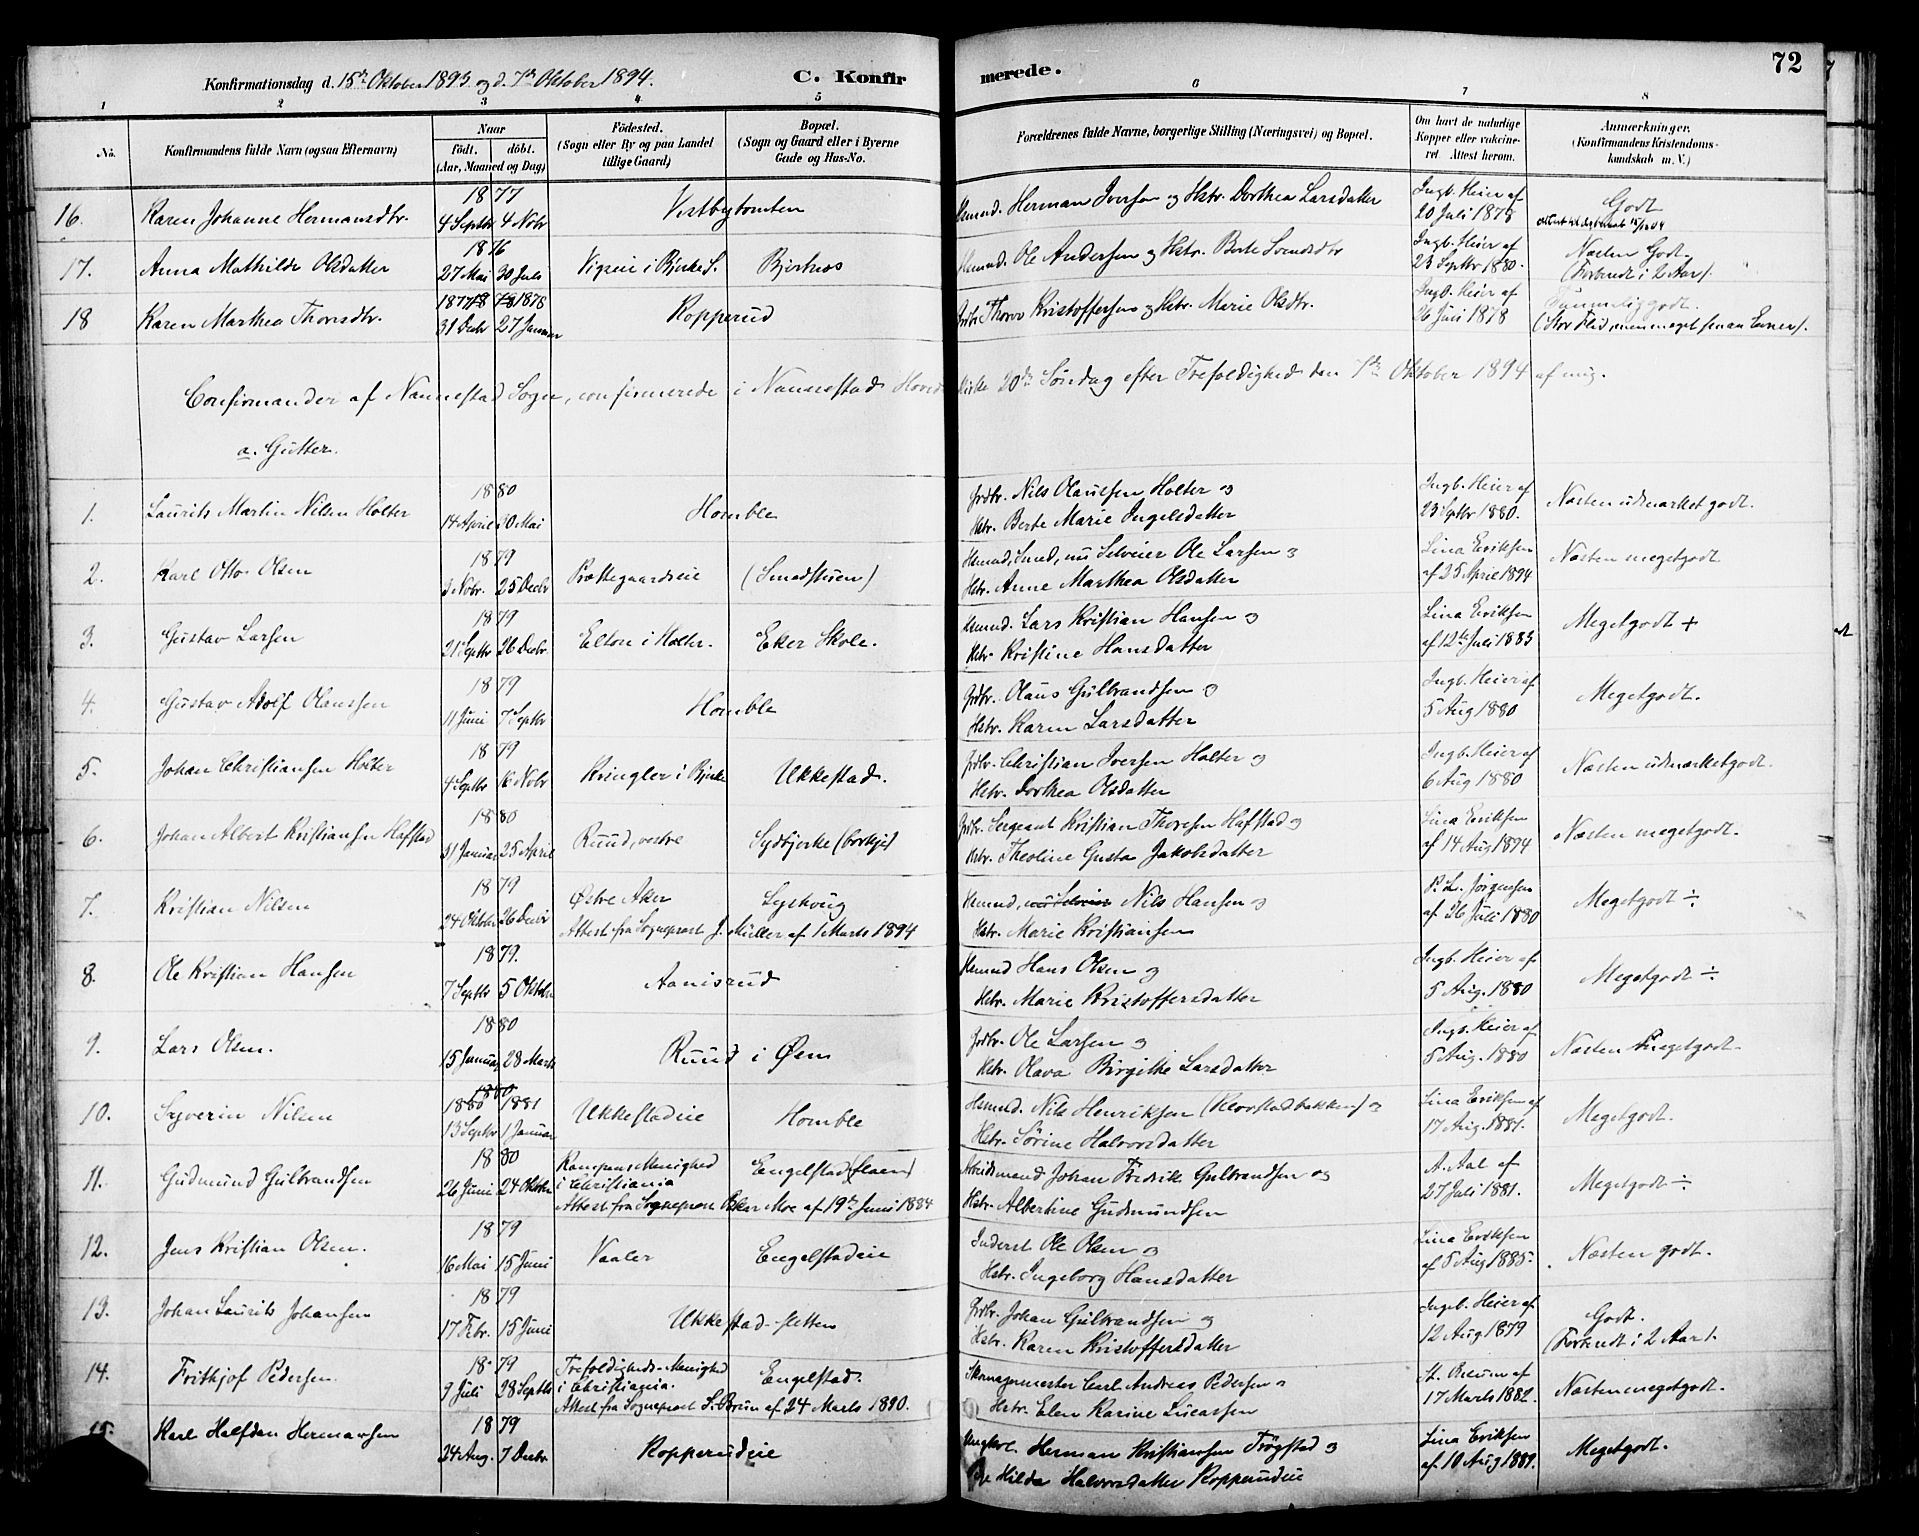 72
Konfirmationsdag d. 15de Oktober 1893 og d. 7de Oktober 1894. C. Konfirmerede.
1 2 3 4 5 6 7 8
No. Konfirmandens fulde Navn (ogsaa Efternavn) Naar födt. döbt. (Aar, Maaned og Dag) Födested. (Sogn eller By og paa Landet tillige Gaard) Bopæl. (Sogn og Gaard eller i Byerne Gade og Hus-No. Forældrenes fulde Navne, borgerlige Stilling (Næringsvei) og Bopæl. Om havt de naturlige Kopper eller vakcineret. Attest herom. Anmærkninger. (Konfirmandens Kristendomskundskab m. V.)
16. Karen Johanne Hermansdtr. 1877 4 Septbr 4 Novbr Vestbytomten Husmd. Herman Iversen og Hstr. Dorthea Larsdatter Ingb. Heier af 20 Juli 1878 Godt
17. Anna Mathilde Olsdatter 1876 27 Mai 30 Juli Vigseie i Bjerke S. Bjerknes Husmd. Ole Andersen og Hstr. Berte Svendsdtr Ingb. Heier af 23 Septbr 1880. Næsten Godt. (Forberedt i 2 Aar).
18 Karen Marthea Thorsdtr. 1877 1878 31 Decbr 27 Januar Kopperud Grdbr. Thorer Kristoffersen og Hstr. Marie Olsdtr. Ingb. Heier af 26 Juli 1878 Temmelig godt. (Stor Flid, men meget smaa Evner).
Confirmander af Nannestad Sogn, confirmerede i Nannestad Hovedkirke 20de Søndag efter Trefoldighed den 7de Oktober 1894 af mig.
a. Gutter.
1. Laurits Martin Nilsen Holter 1880 14 April 20 Mai Homble Grdbr. Nils Olaulsen Holter og Hstr. Berte Marie Ingelsdatter Ingb. Heier af 23 Septbr 1880. Næsten udmærket godt.
2. Karl Otto Olsen 1879 2 Novbr. 25 Decbr Prættegaardseie (Smedstuen) Husmd, Smed, nu Selveier Ole Larsen og Hstr. Anne Marthea Olsdatter Lina Eriksen af 25 April 1894 Næsten megetgodt
3. Gustav Larsen 1879 21 Septbr 26 Decbr. Elton i Holter. Eker Skole. Husmd. Lars Kristian Hansen og Hstr. Kristine Hansdatter Lina Eriksen af 12te Juli 1883 Megetgodt +
4. Gustav Adolf Olaussen 1879 11 Juni 7 Septbr Homble Grdbr. Olaus Gulbrandsen og Hstr. Karen Larsdatter Ingb. Heier af 5 Aug 1880 Megetgodt.
5. Johan Christiansen Holter 1879 4 Septbr 16 Novbr Kringler i Bjerke Ukkestad. Grdbr. Christian Iversen Holter og Hstr. Dorthea Olsdatter Ingb. Heier af 6 Aug 1880 Næsten udmærketgodt.
6. Johan Albert Kristiansen Hafstad 1880 31 Januar 25 April Ruud, vestre Sydbjerke Grdbr. Sergeant Kristian Thoresen Hafstad og Hstr. Theoline Gusta Jakobsdatter Lina Eriksen af 14 Aug 1894 Næsten megetgodt.
7. Kristian Nilsen 1879 24 Oktober 26 Decbr Østre Aker Lystvug Attest fra Sogneprest J. Müller af 1 Marts 1894 Husmd, Nils Hansen og Hstr. Marie Kristiansen P. L. Jörgensen af 26 Juli 1880 Megetgodt ÷
8. Ole Kristian Hansen 1879. 7 Septbr 5 Oktober Aanisrud Husmd Hans Olsen og Hstr. Marie Kristoffersdatter Ingb. Heier af 5 Aug. 1880 Megetgodt ÷
9. Lars Olsen. 1880 15 Januar 28 Marts Ruud i Øsm Grdbr. Ole Larsen og Hstr. Olava Birgithe Larsdatter Ingb. Heier af 5 Aug. 1880 Næsten Megetgodt.
10. Syverin Nilsen 1880 1881 13 Septbr 1 Januar Ukkestadeie Homble Husmd. Nils Henriksen (Klovstadbakken) og Hstr. Sörine Halvorsdatter Lina Eriksen af 17 Aug. 1881. Megetgodt.
11. Gudmund Gulbrandsen 1880 26 Juni 24 Oktober Kampens Menighed i Christiania Engelstad (flaen) Attest fra Sogneprest Oskar Moe af 19de Juni 1884 Arbeidsmand Johan Fredrik Gulbrandsen og Hstr. Albertine Gudmundsen A. Aal af 27 Juli 1881. Megetgodt ÷
12. Jens Kristian Olsen. 1879 16 Mai 15 Juni Vaaler Engelstadeie Inderst Ole Olsen og Hstr. Ingeborg Hansdatter Lina Eriksen af 5 Aug 1885. Næsten godt.
13. Johan Laurits Johansen 1879 17 Febr. 15 Juni Ukkestad-sletten Grdbr. Johan Gulbrandsen og Hstr. Karen Kristoffersdatter Ingeb. Heier af 12 Aug 1879 Godt. (Forberedt i 2 Aar).
14. Frithjof Pedersen. 1879 9 Juli 28 Septbr Trefoldigheds-Menighed i Christiania. Engelstad. Attest fra Sogneprest S. Brun af 24 Marts 1890. Skomagermester Carl Andreas Pedersen og Hstr. Elen Karine Lucassen St. Bruun af 17 Marts 1882. Næsten megetgodt.
15. Karl Halfdan Hermansen 1879 24 Aug. 7 Decbr. Kopperudeie Ungkarl. Herman Kristiansen Trøgstad og Pige Hilda Halvorsdatter Kopperudeie Lina Eriksen af 10 Aug 1889. Megetgodt.